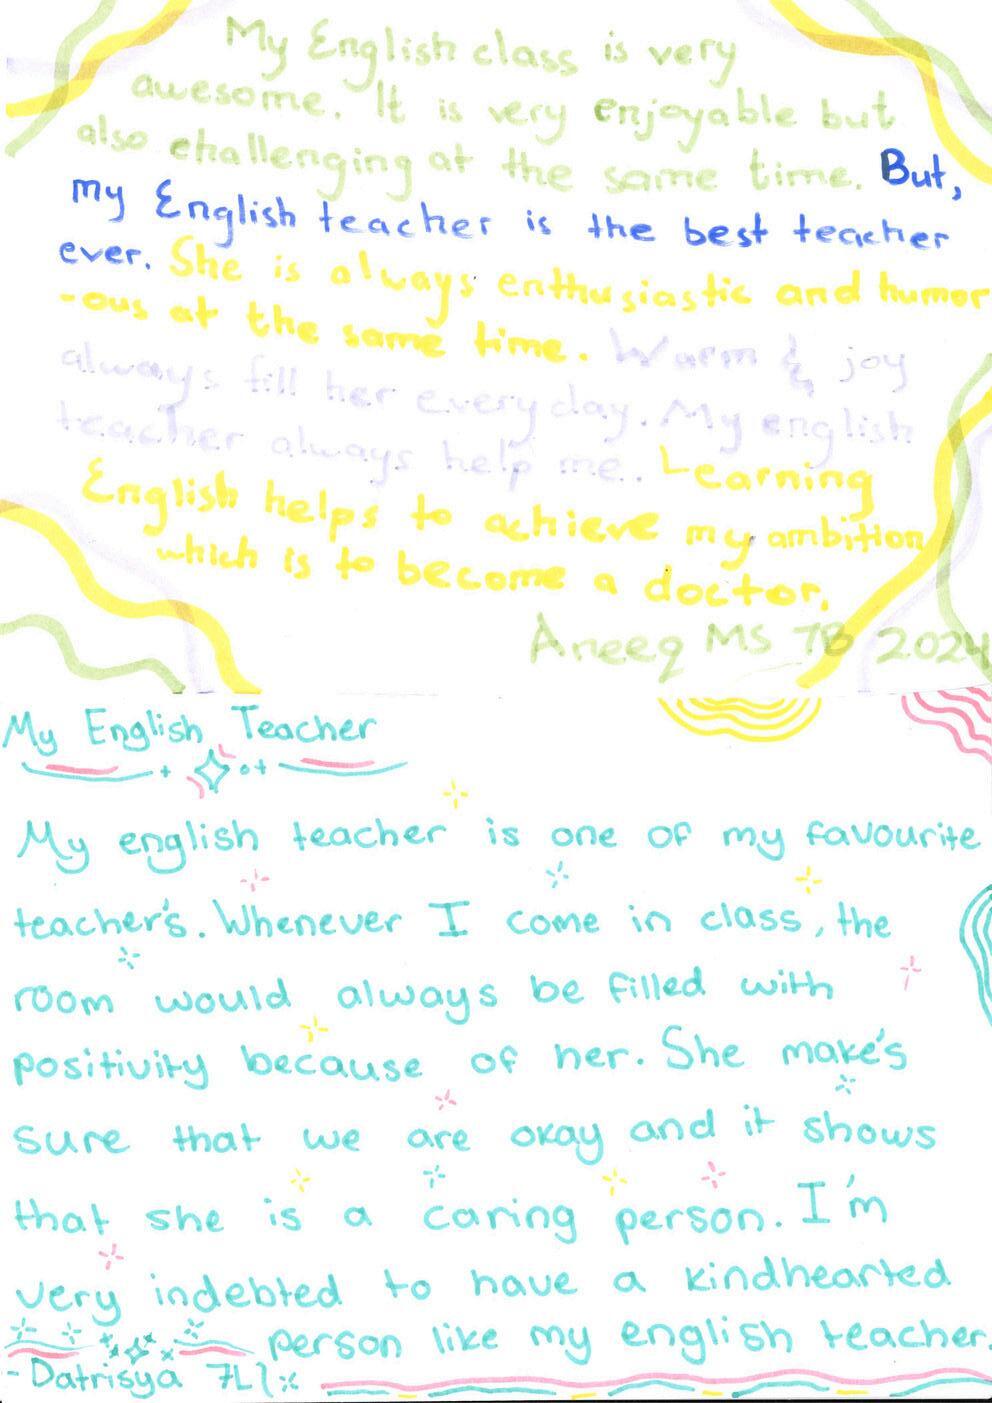 My English class is very
awesome. It is very enjoyable but
also challenging at the same time. But,
my English teacher is the best teacher
ever. She is always enthusiastic and humor
-ous at the same time. Warm & joy
always fill her every day. My english
teacher always help me.. Learning
English helps to achieve my ambition
which is to become a doctor.
Aneeq MS 7B 2024
My English Teacher
My english teacher is one of my favourite
teacher's. Whenever I come in class, the
room would always be filled with
positivity because of her. She make's
sure that we are okay and it shows
that she is a caring person. I'm
very indebted to have a kindhearted
person like my english teacher.
- Datrisya 7L